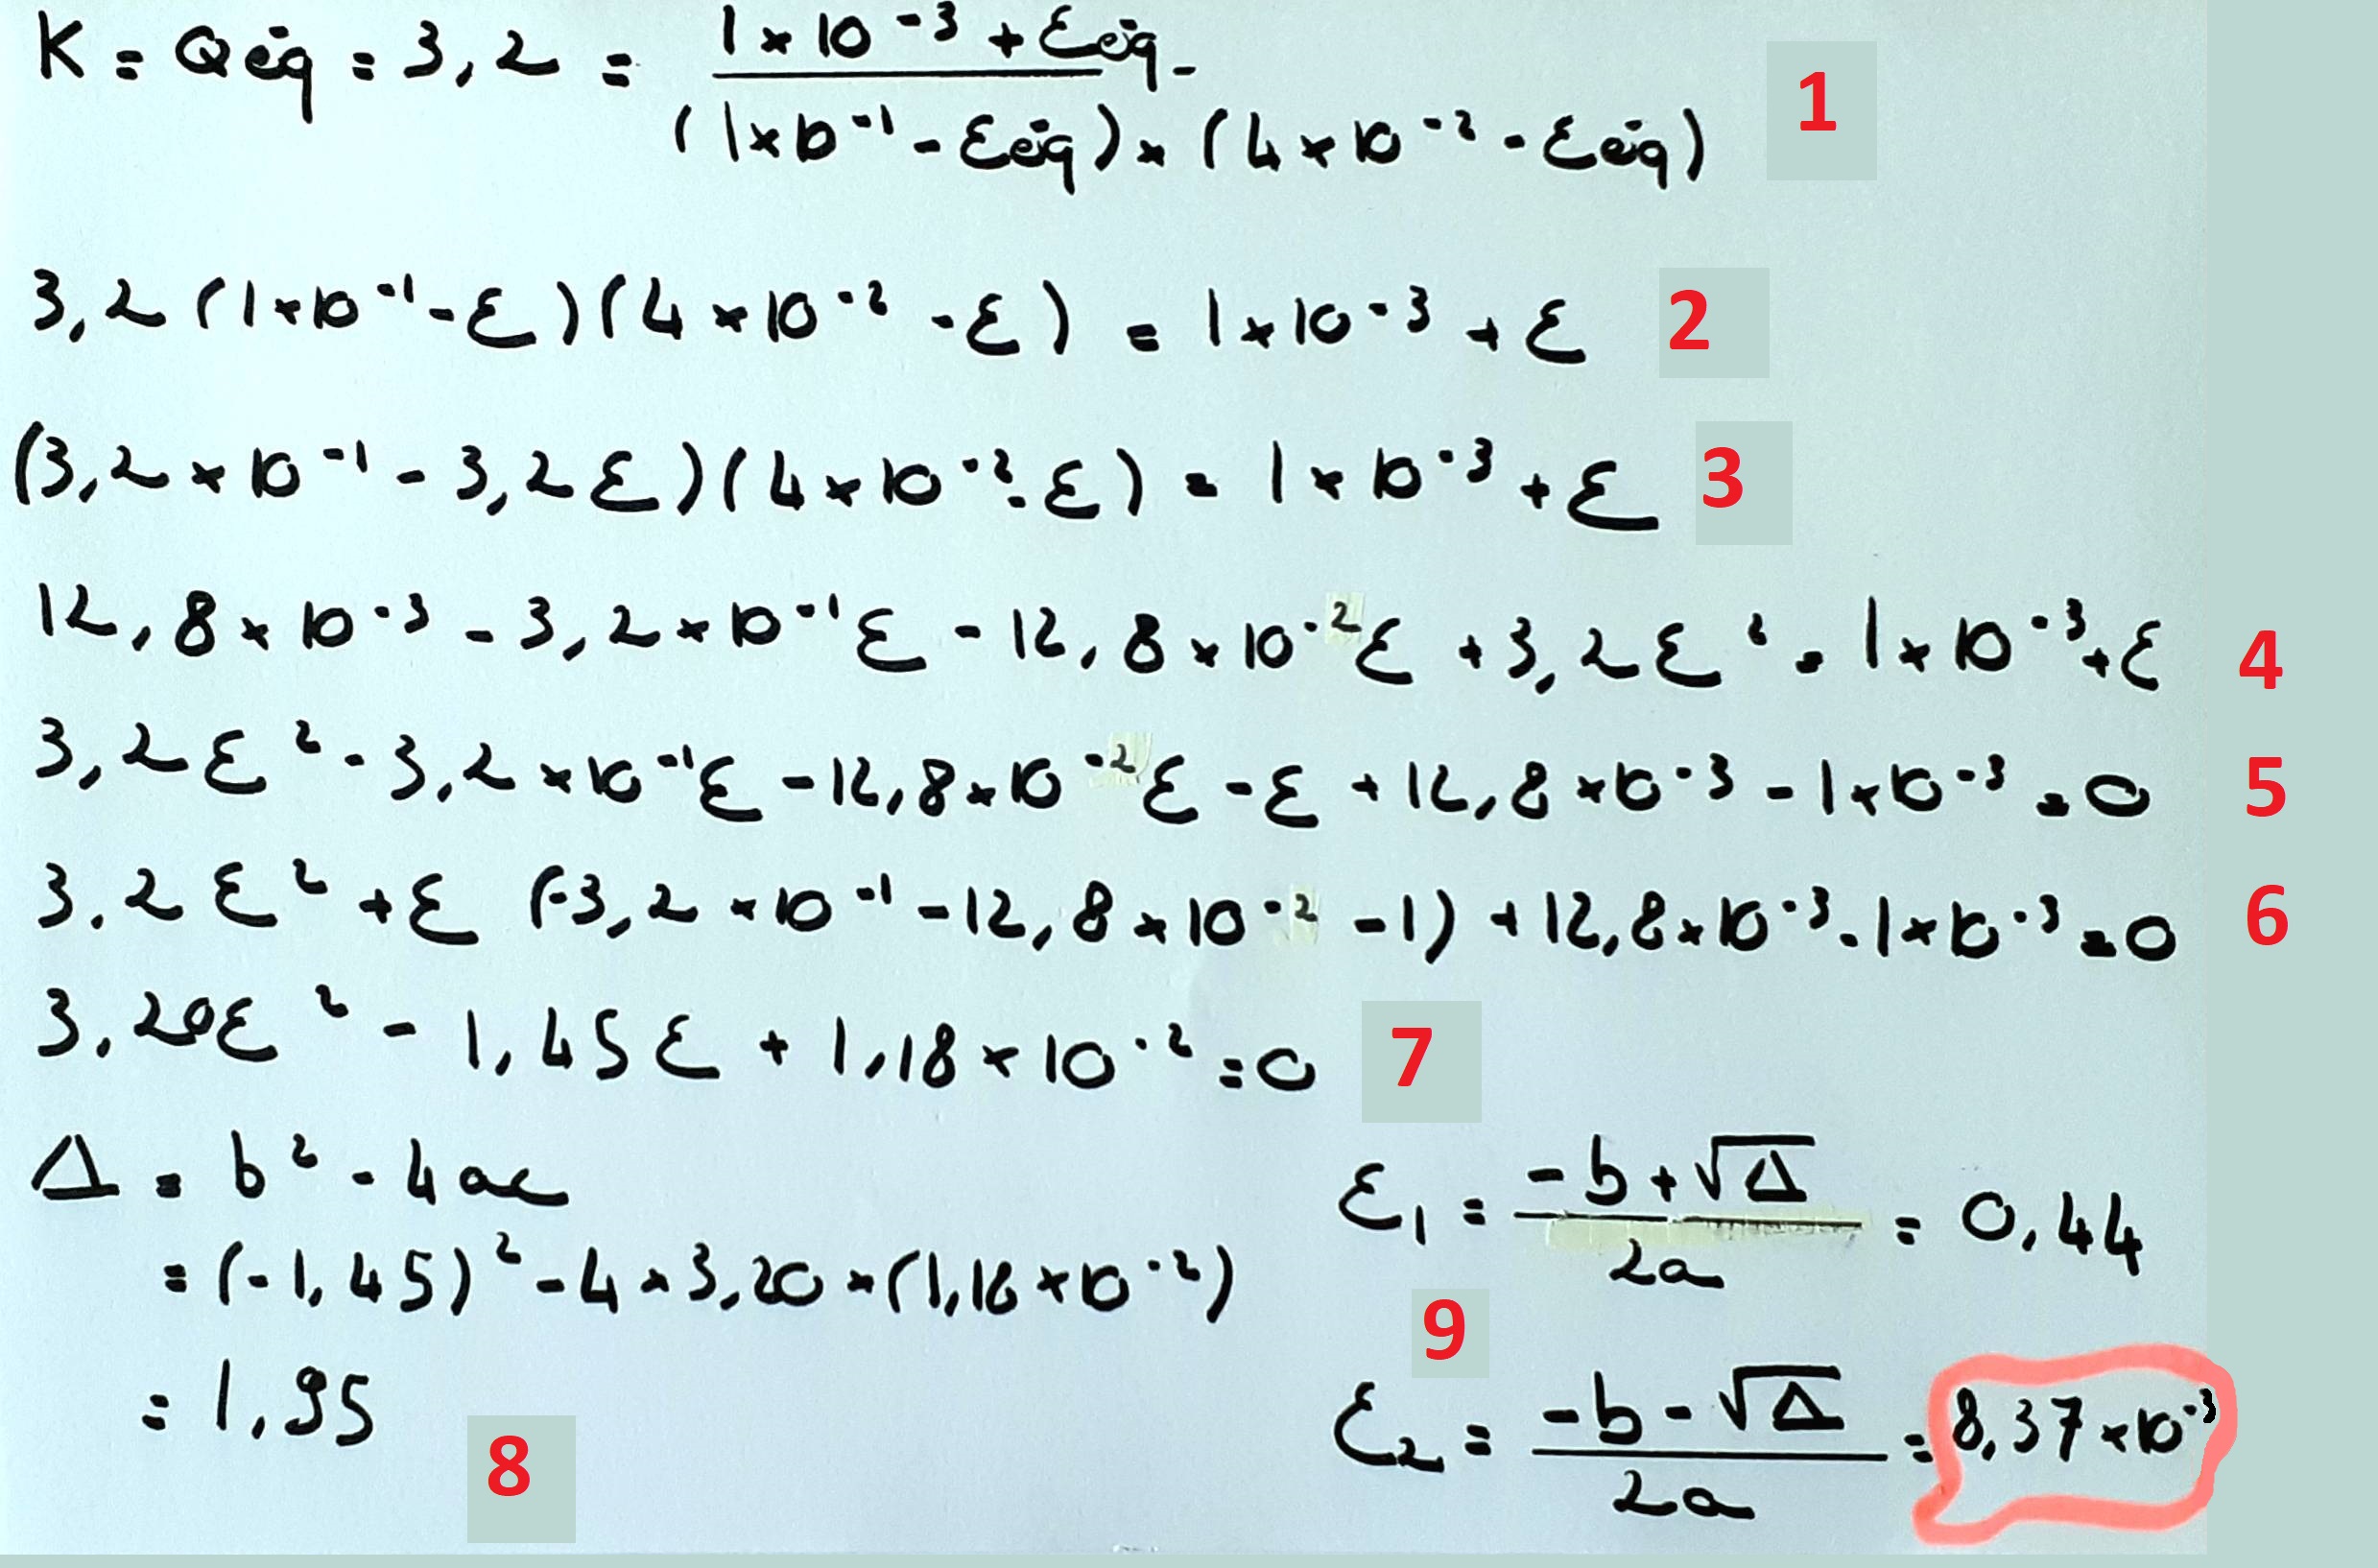 K = Qéq = 3,2 = 1 × 10⁻³ + εéq
(1×10⁻¹ - εéq) × (4×10⁻² - εéq) 1
3,2 (1×10⁻¹ - ε)(4 × 10⁻² - ε) = 1×10⁻³ + ε 2
(3,2 × 10⁻¹ - 3,2 ε)(4×10⁻² - ε) = 1 × 10⁻³ + ε 3
12,8 × 10⁻³ - 3,2 × 10⁻¹ ε - 12,8 × 10⁻² ε + 3,2 ε² = 1 × 10⁻³ + ε 4
3,2 ε² - 3,2 × 10⁻¹ ε - 12,8 × 10⁻² ε - ε + 12,8 × 10⁻³ - 1×10⁻³ = 0 5
3.2 ε² + ε (-3,2 × 10⁻¹ - 12,8 × 10⁻² - 1) + 12,8 × 10⁻³ - 1×10⁻³ = 0 6
3,20 ε² - 1,45 ε + 1,18 × 10⁻² = 0 7
Δ = b² - 4ac
= (-1,45)² - 4 × 3,20 × (1,18 × 10⁻²)
= 1,95
8
ε₁ = -b + √Δ = 0,44
2a
9
ε₂ = -b - √Δ = 8,37 × 10⁻³
2a